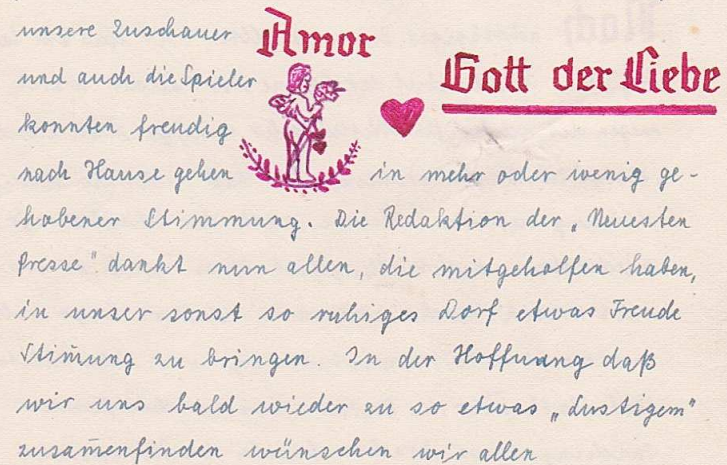 unsere Zuschauer
Amor
und auch die Spieler
Gott der Liebe
konnten freudig
nach Hause gehen in mehr oder wenig ge-
hobener Stimmung. Die Redaktion der „Neuesten
Presse" dankt nun allen, die mitgeholfen haben,
in unser sonst so ruhiges Dorf etwas Freude
Stim̄ung zu bringen. In der Hoffnung daß
wir uns bald wieder zu so etwas „Lustigem"
zusam̄enfinden wünschen wir allen